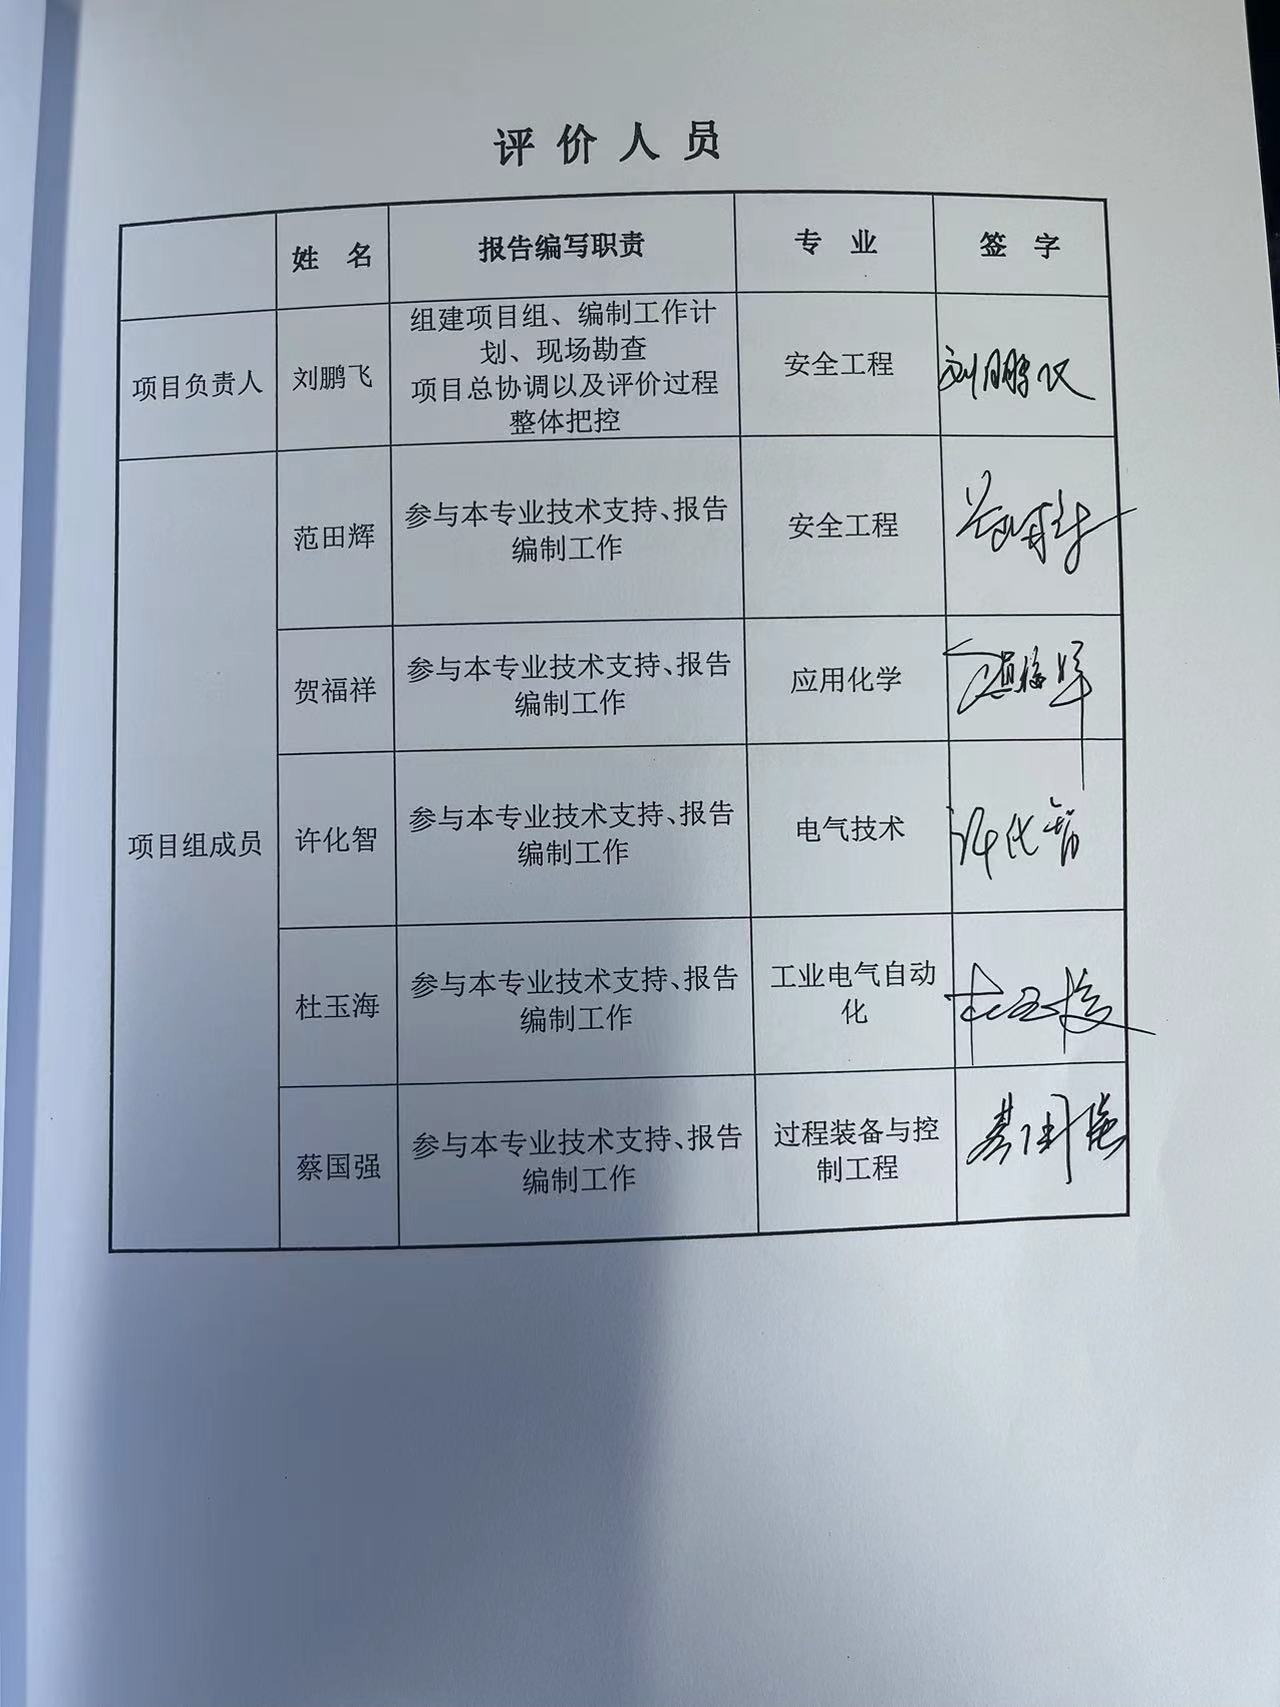 评价人员
姓 名
报告编写职责
专 业
签 字
项目负责人
刘鹏飞
组建项目组、编制工作计
划、现场勘查
项目总协调以及评价过程
整体把控
安全工程
刘鹏飞
项目组成员
范田辉
参与本专业技术支持、报告
编制工作
安全工程
贺福祥
参与本专业技术支持、报告
编制工作
应用化学
许化智
参与本专业技术支持、报告
编制工作
电气技术
许化智
杜玉海
参与本专业技术支持、报告
编制工作
工业电气自动
化
杜玉海
蔡国强
参与本专业技术支持、报告
编制工作
过程装备与控
制工程
蔡国强